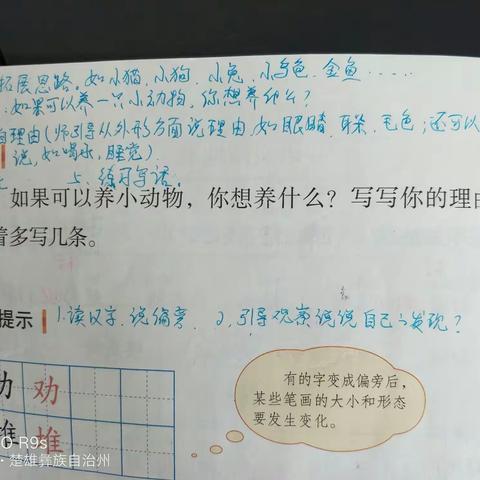 拓展思路。如小猫、小狗、小兔、小乌龟、金鱼……
如果可以养一只小动物,你想养什么?
理由(师引导从外形方面说理由,如眼睛、耳朵、毛色;还可以
说,如喝水,睡觉)
5、练习写话。
如果可以养小动物,你想养什么?写写你的理由
着多写几条。
提示 1、读汉字,说偏旁 2、引导观察说说自己的发现?
劝 劝
堆 堆
有的字变成偏旁后,
某些笔画的大小和形态
要发生变化。
O R9s
·楚雄彝族自治州